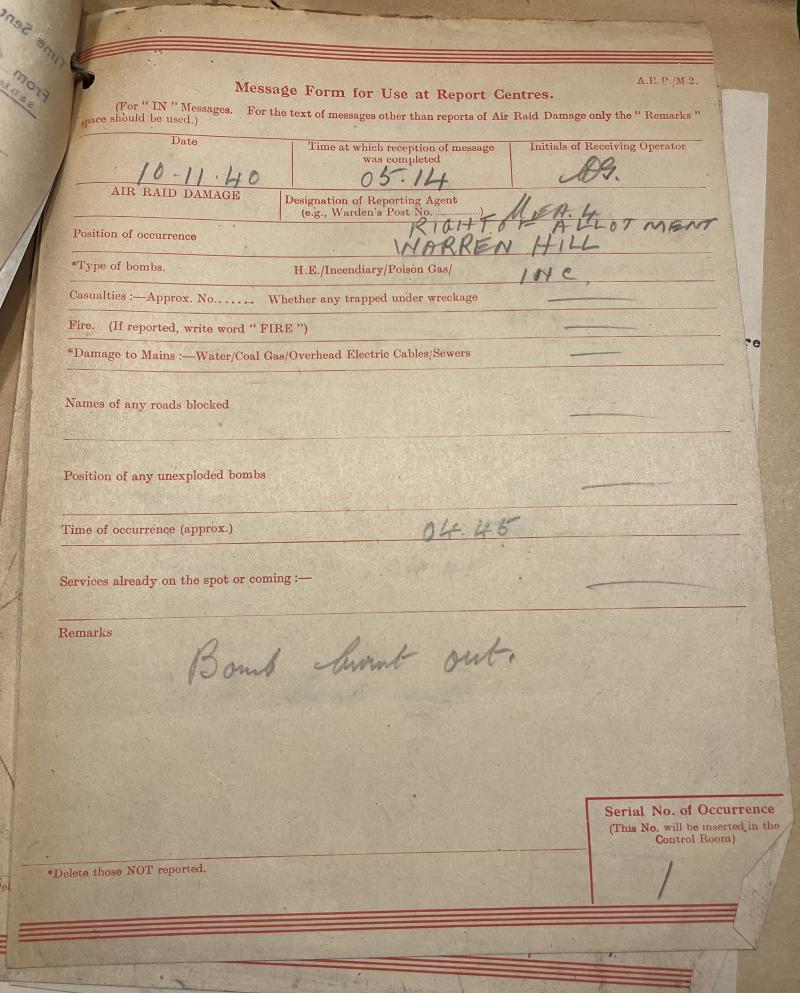 Time Sent
From
A.R.P./M.2.
Message Form for Use at Report Centres.
(For "IN" Messages. For the text of messages other than reports of Air Raid Damage only the "Remarks"
space should be used.)
Date
Time at which reception of message
was completed
Initials of Receiving Operator
10-11-40
05.14
AIR RAID DAMAGE
Designation of Reporting Agent
(e.g., Warden's Post No. ...............)
Position of occurrence
RIGHT OF ALLOTMENT
WARREN HILL
*Type of bombs.
H.E./Incendiary/Poison Gas/
INC.
Casualties :—Approx. No....... Whether any trapped under wreckage
Fire. (If reported, write word "FIRE")
*Damage to Mains :—Water/Coal Gas/Overhead Electric Cables/Sewers
Names of any roads blocked
Position of any unexploded bombs
Time of occurrence (approx.)
04.45
Services already on the spot or coming :—
Remarks
Bomb burnt out.
Serial No. of Occurrence
(This No. will be inserted in the
Control Room)
1
*Delete those NOT reported.